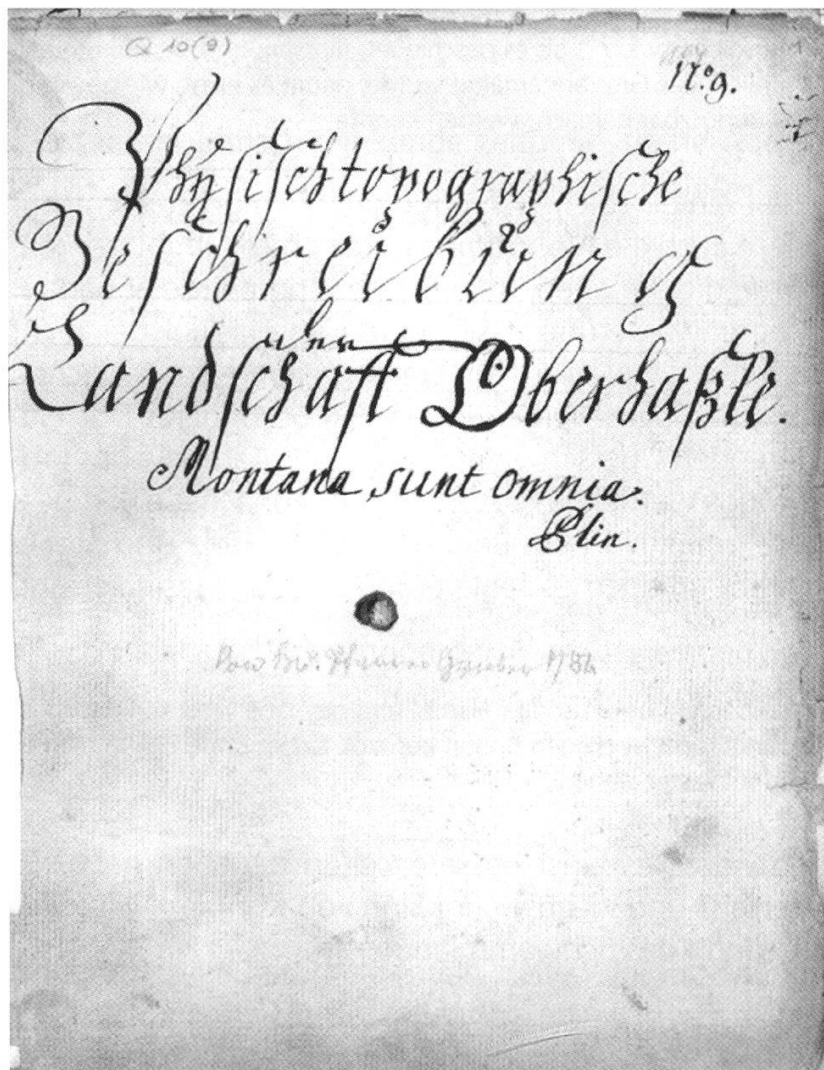 Q 10(9)
N.º 9.
Physischtopographische
Beschreibung
der
Landschafft Oberhaßle.
Montana sunt omnia.
Plin.
Von Hr. Pfarrer